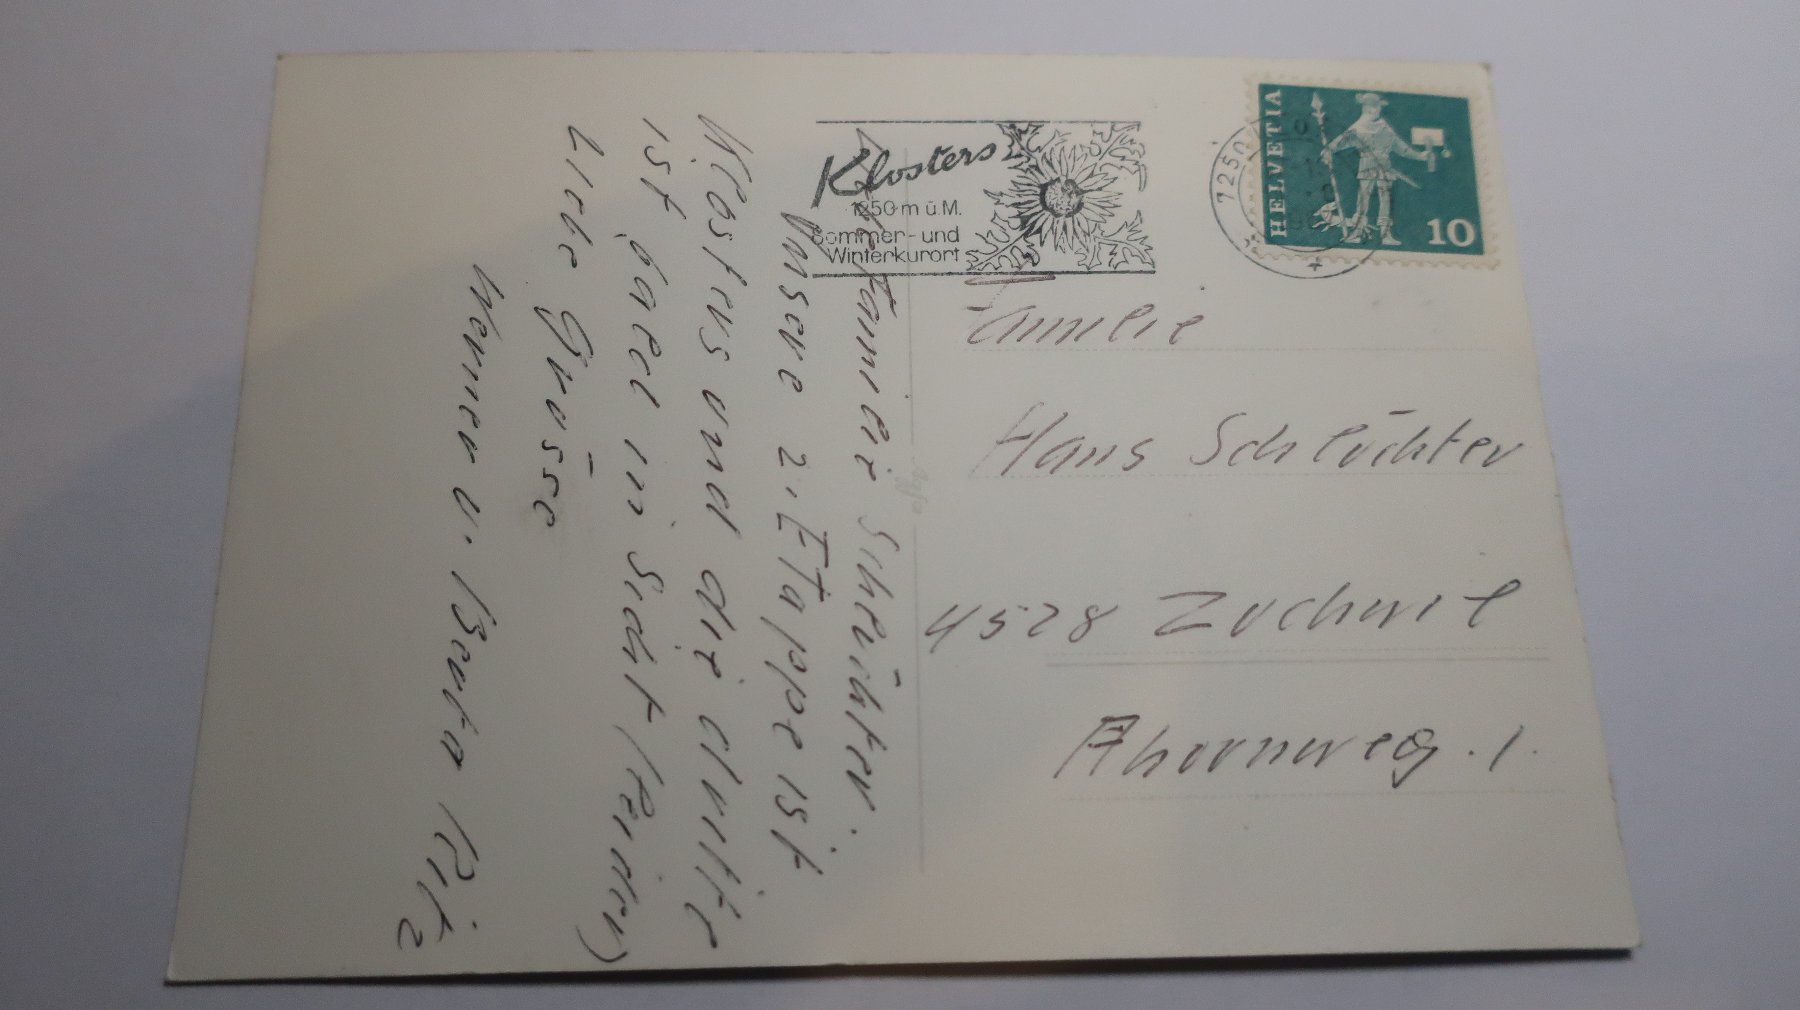 Liebe Familie Schlüchter.
Unsere 2. Etappe ist
Klosters und die dritte
ist babel in Sicht (leider)
Liebe Grüsse
Werner u. Berta Ritz
Klosters
1250 m ü.M.
Sommer- und
Winterkurort
7250
HELVETIA
10
Familie
Hans Schlüchter
4528 Zuchwil
Ahornweg. 1.